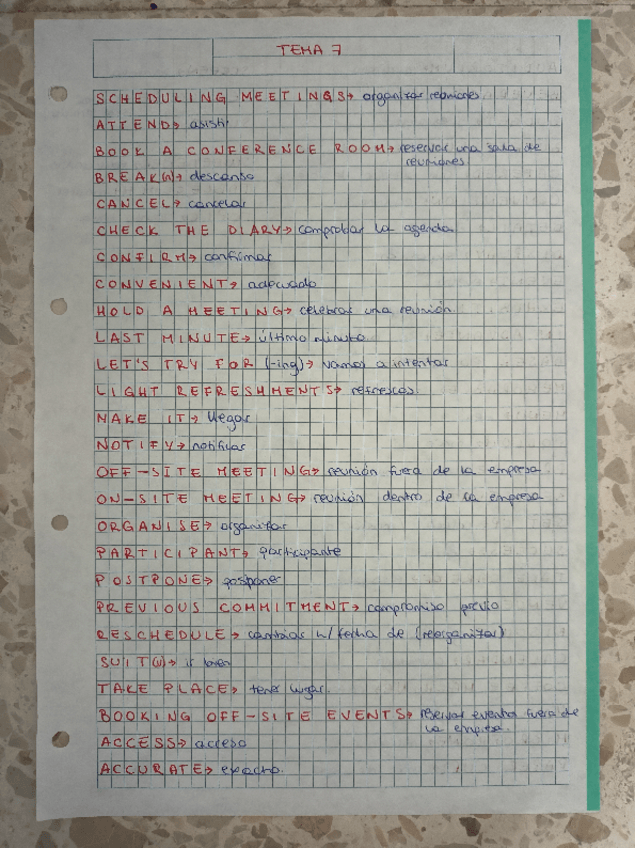 TEMA 7
SCHEDULING MEETINGS→ organizar reuniones
ATTEND→ asistir
BOOK A CONFERENCE ROOM→ reservar una sala de
reuniones
BREAK(n)→ descanso
CANCEL→ cancelar
CHECK THE DIARY→ comprobar la agenda
CONFIRM→ confirmar
CONVENIENT→ adecuado
HOLD A MEETING→ celebrar una reunión
LAST MINUTE→ último minuto
LET'S TRY FOR (-ing)→ vamos a intentar
LIGHT REFRESHMENTS→ refrescos.
MAKE IT→ llegar
NOTIFY→ notificar
OFF-SITE MEETING→ reunión fuera de la empresa
ON-SITE MEETING→ reunión dentro de la empresa
ORGANISE→ organizar
PARTICIPANT→ participante
POSTPONE→ posponer
PREVIOUS COMMITMENT→ compromiso previo
RESCHEDULE→ cambiar h/fecha de (reorganizar)
SUIT(v)→ ir bien
TAKE PLACE→ tener lugar.
BOOKING OFF-SITE EVENTS→ reservar eventos fuera de
la empresa.
ACCESS→ acceso
ACCURATE→ exacto.